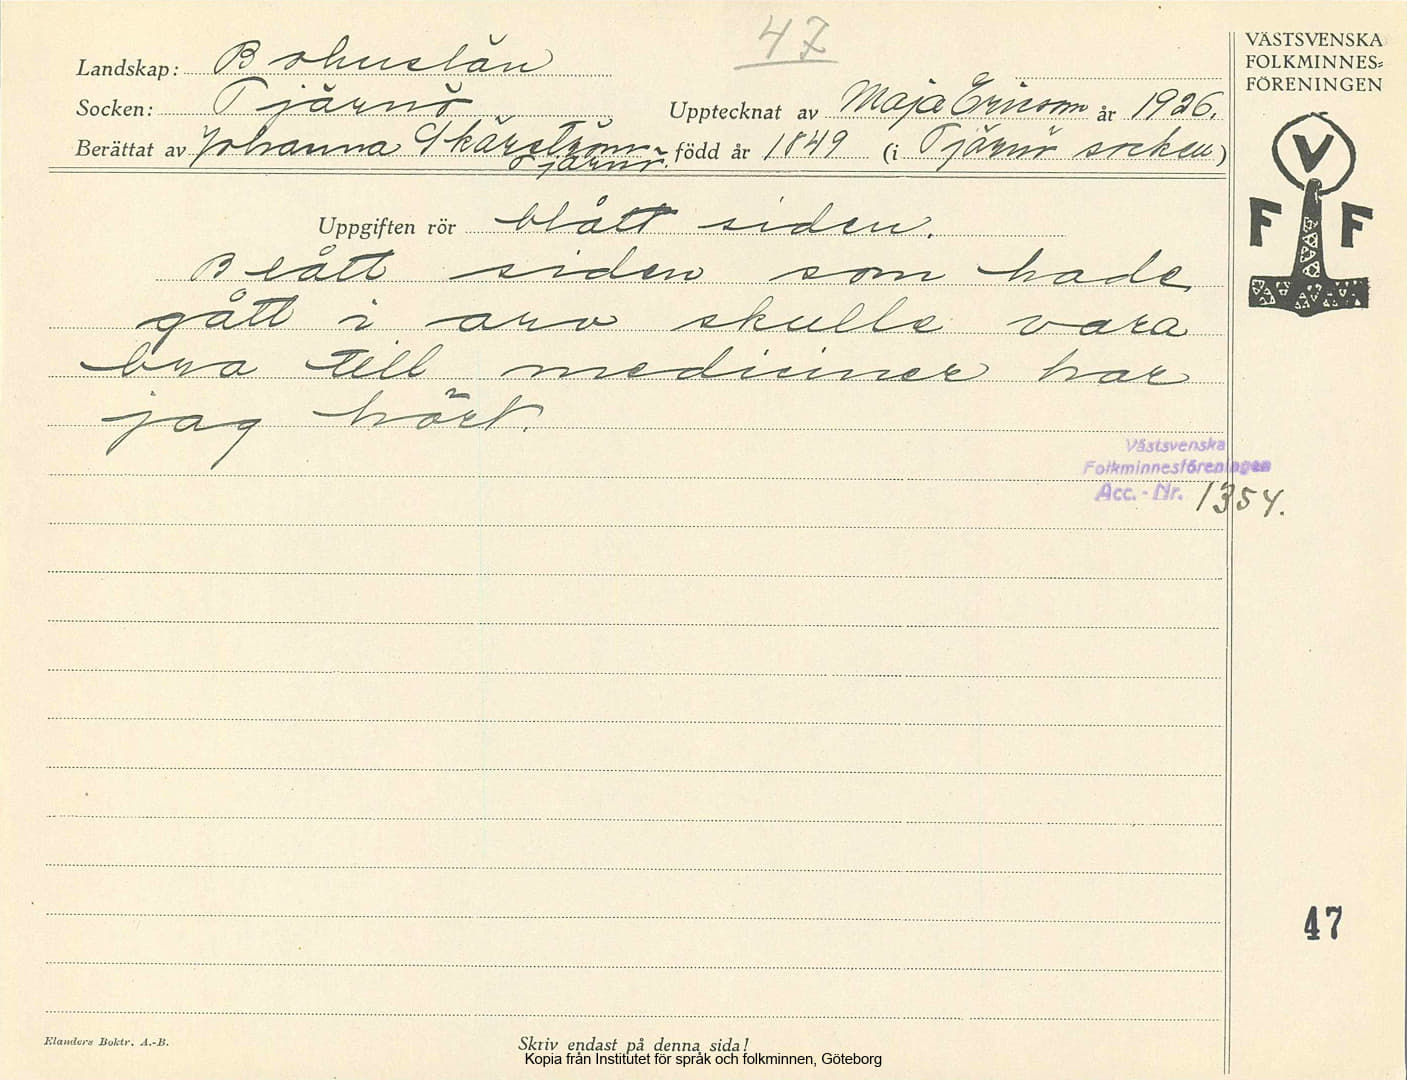 47
VÄSTSVENSKA
FOLKMINNES=
FÖRENINGEN
Landskap: Bohuslän
Socken: Tjärnö
Upptecknat av Maja Ericson år 1926.
Berättat av Johanna Skärström född år 1849 (i Tjärnö socken)
Tjärnö.
V
F F
Uppgiften rör blått siden.
Blått siden som hade
gått i arv skulle vara
bra till mediciner har
jag hört.
Västsvenska
Folkminnesföreningen
Acc. - Nr. 1354.
47
Elanders Boktr. A.-B.
Skriv endast på denna sida!
Kopia från Institutet för språk och folkminnen, Göteborg